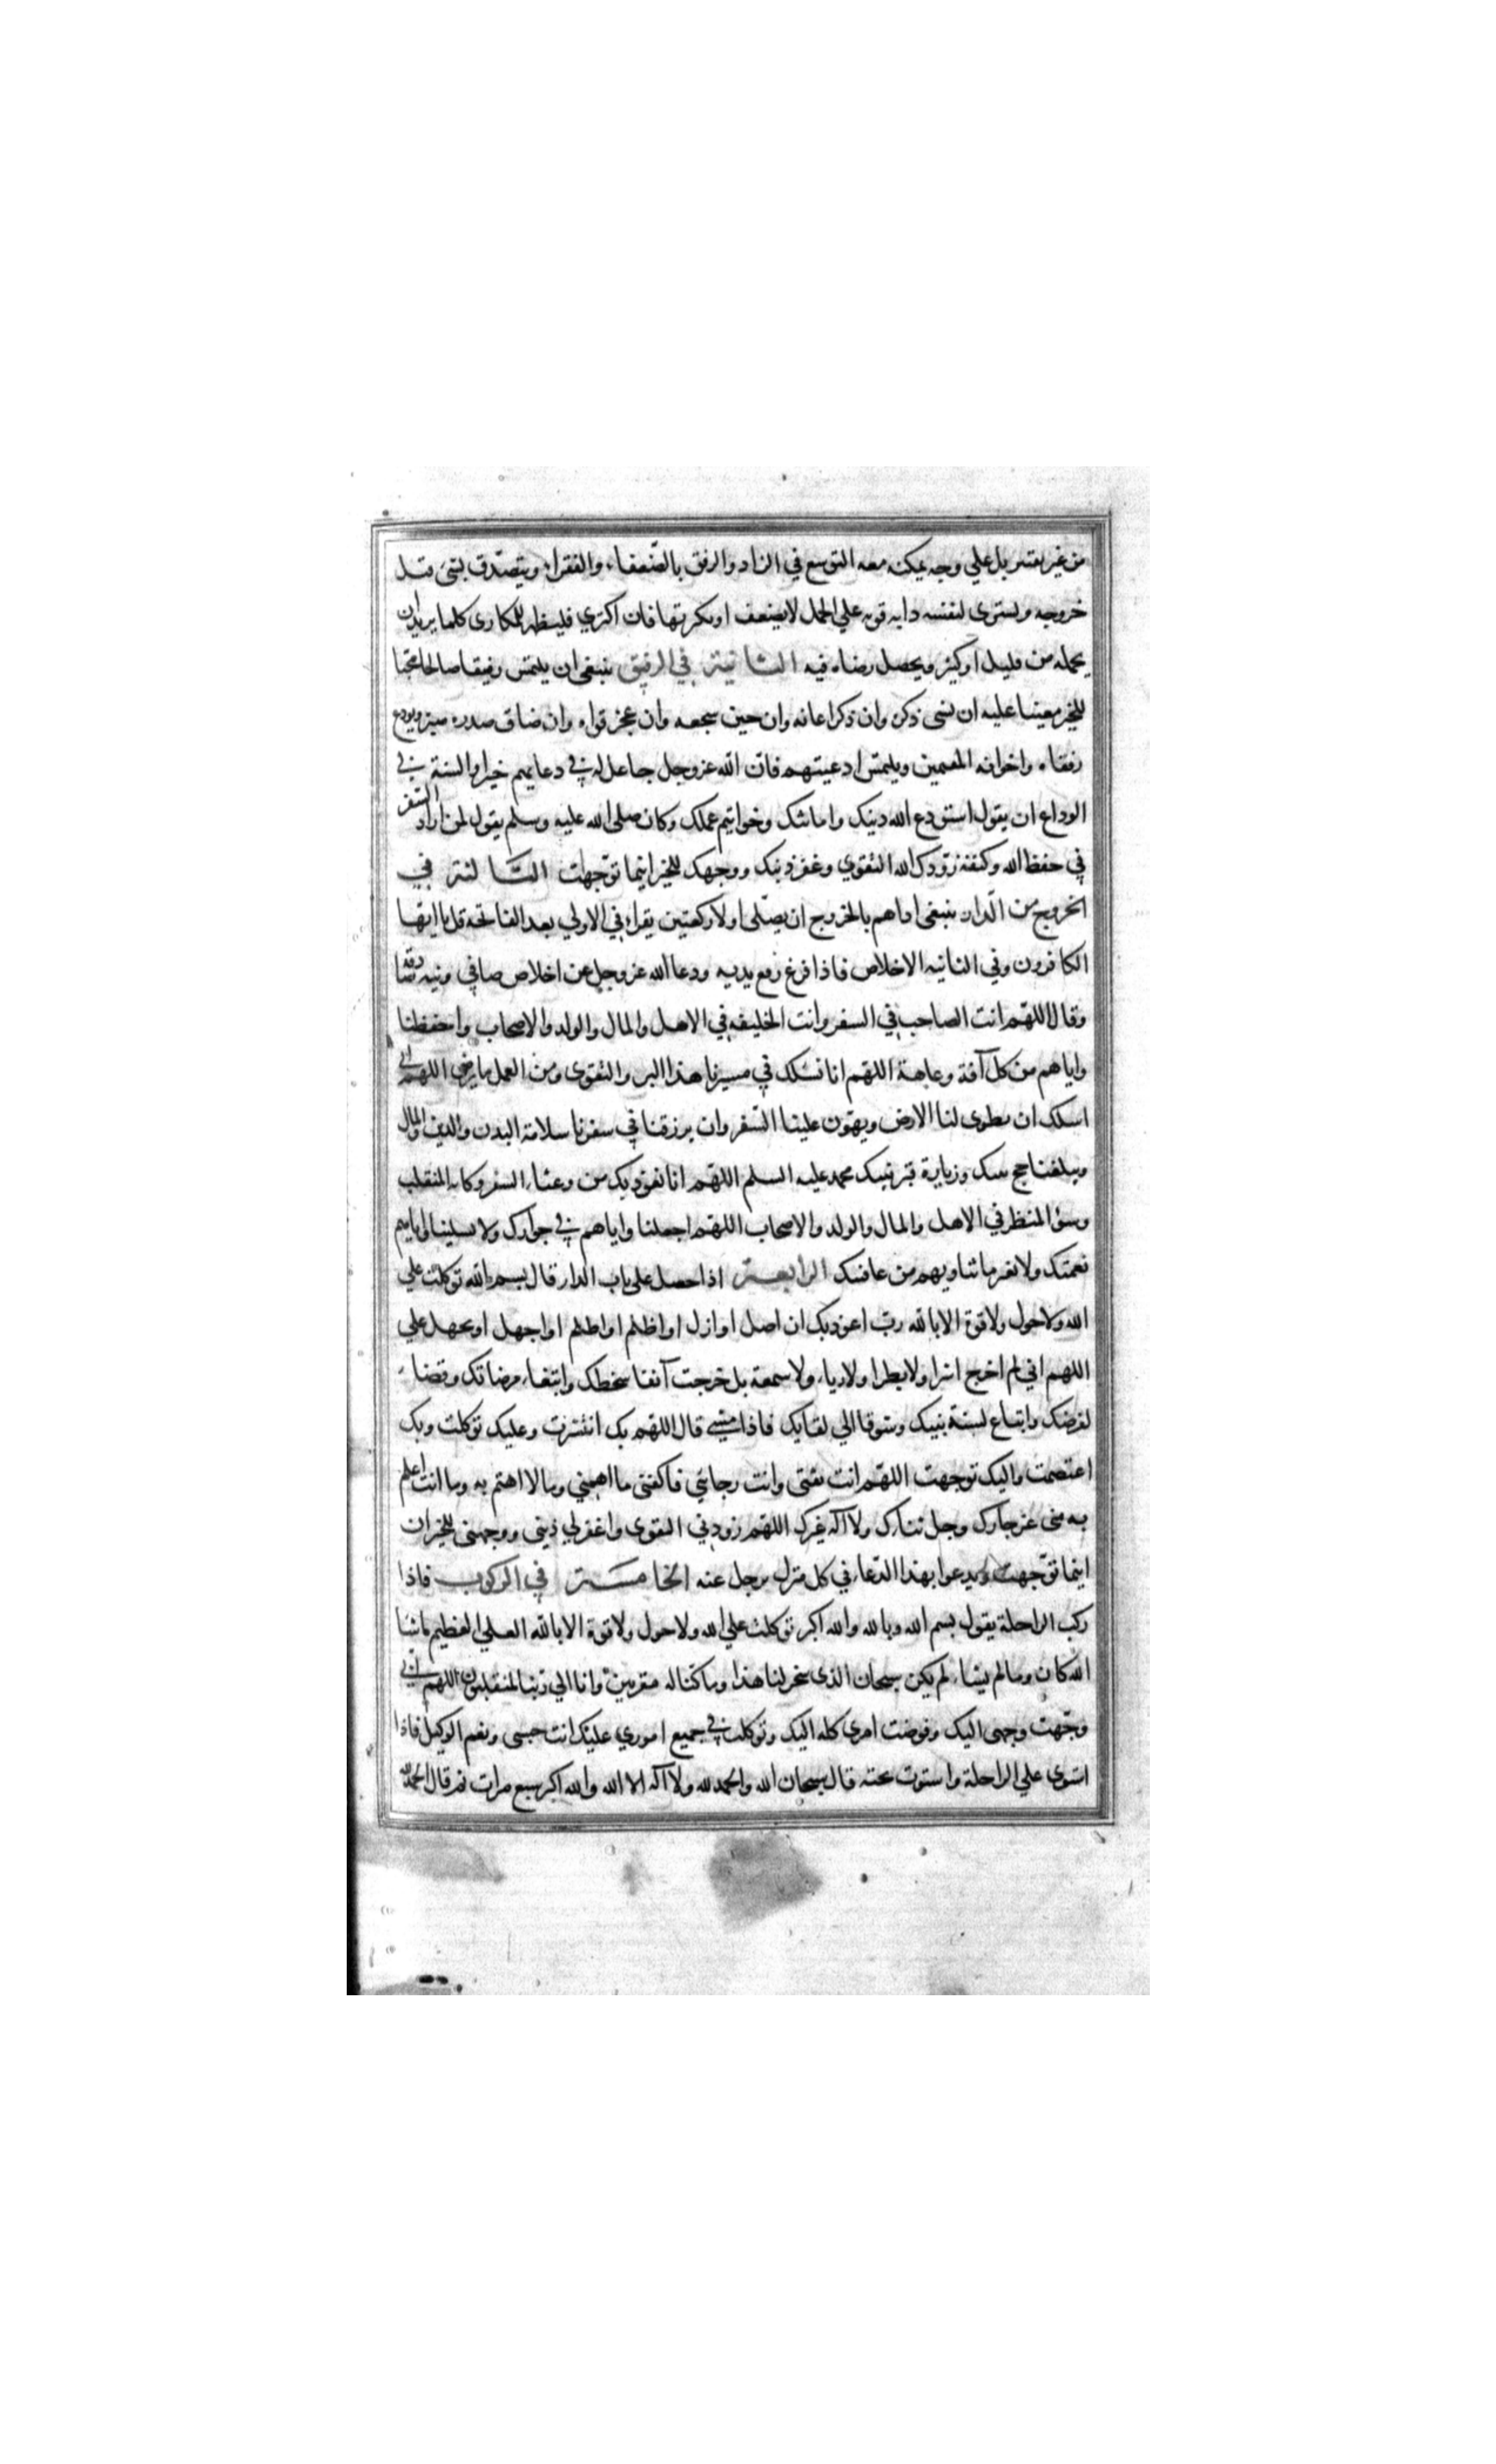 من غير تقتير بل علي وجه يمكنه معه التوسع في الزاد والرفق بالضعفاء والفقراء ويتصدق بشئ قبل
خروجه ويشترى لنفسه دابه قويه علي الحمل لا يضعف او يكريها فان اكتري فليظهر للمكارى كلما يريد ان
يحمله من قليل او كثير ويحصل رضاه فيه الثانية في الرفيق ينبغى ان يلتمس رفيقا صالحا محبا
للخير معينا عليه ان نسى ذكره وان ذكر اعانه وان جبن شجعه وان عجز قواه وان ضاق صدره صبره ويودع
رفقاه واخوانه المقيمين ويلتمس ادعيتهم فان الله عزوجل جاعل له في دعايهم خيرا والسنة في
الوداع ان يقول استودع الله دينك وامانتك وخواتيم عملك وكان صلى الله عليه وسلم يقول لمن اراد السفر
في حفظ الله وكنفه زودك الله التقوي وغفر ذنبك ووجهك للخير اينما توجهت الثالثة في
الخروج من الدار ينبغى اذا هم بالخروج ان يصلى اولا ركعتين يقراء في الاولي بعد الفاتحة قل يا ايها
الكافرون وفي الثانيه الاخلاص فاذا فرغ رفع يديه ودعا الله عزوجل عن اخلاص صافي ونيه صادقة
وقال اللهم انت الصاحب في السفر وانت الخليفه في الاهل والمال والولد والاصحاب واحفظنا
واياهم من كل آفة وعاهة اللهم انا نسئلك في مسيرنا هذا البر والتقوى ومن العمل ما يرضى اللهم انى
اسلك ان يطوى لنا الارض ويهون علينا السفر وان يرزقنا في سفرنا سلامة البدن والدين والمال
ويبلغنا حج بيتك وزيارة قبر نبيك محمد عليه السلم اللهم انا نعوذ بك من وعثاء السفر وكابه المنقلب
وسؤ المنظر في الاهل والمال والولد والاصحاب اللهم اجعلنا واياهم في جوارك ولا تسلبنا واياهم
نعمتك ولا تغير ما بنا وبهم من عافيتك الرابعة اذا حصل على باب الدار قال بسم الله توكلت علي
الله ولا حول ولا قوة الا بالله رب اعوذ بك ان اضل او ازل او اظلم او اظلم او اجهل او يجهل علي
اللهم اني لم اخرج اشرا ولا بطرا ولا رياء ولا سمعة بل خرجت آنقا سخطك وابتغاء مرضاتك وقضاء
لفرضك واتباع لسنة نبيك وشوقا الي لقايك فاذا مشي قال اللهم بك انتشرت وعليك توكلت وبك
اعتصمت واليك توجهت اللهم انت ثقتى وانت رجائي فاكفنى ما اهمني وما لا اهتم به وما انت اعلم
به منى عز جارك وجل ثناك ولا آله غيرك اللهم زودني التقوى واغفر لي ذنبى ووجهنى للخير ان
اينما توجهت ويدعوا بهذا الدعاء في كل منزل يرحل عنه الخامسة في الركوب فاذا
ركب الراحلة يقول بسم الله وبالله والله اكبر توكلت علي الله ولا حول ولا قوة الا بالله العلي العظيم ماشا
الله كان وما لم يشاء لم يكن سبحان الذى سخر لنا هذا وما كنا له مقرنين وانا الي ربنا لمنقلبون اللهم اني
وجهت وجهى اليك وفوضت امرى كله اليك وتوكلت في جميع اموري عليك انت حسبى ونعم الوكيل فاذا
استوى علي الراحلة واستوت تحته قال سبحان الله والحمد لله ولا آله الا الله والله اكبر سبع مرات ثم قال الحمد لله